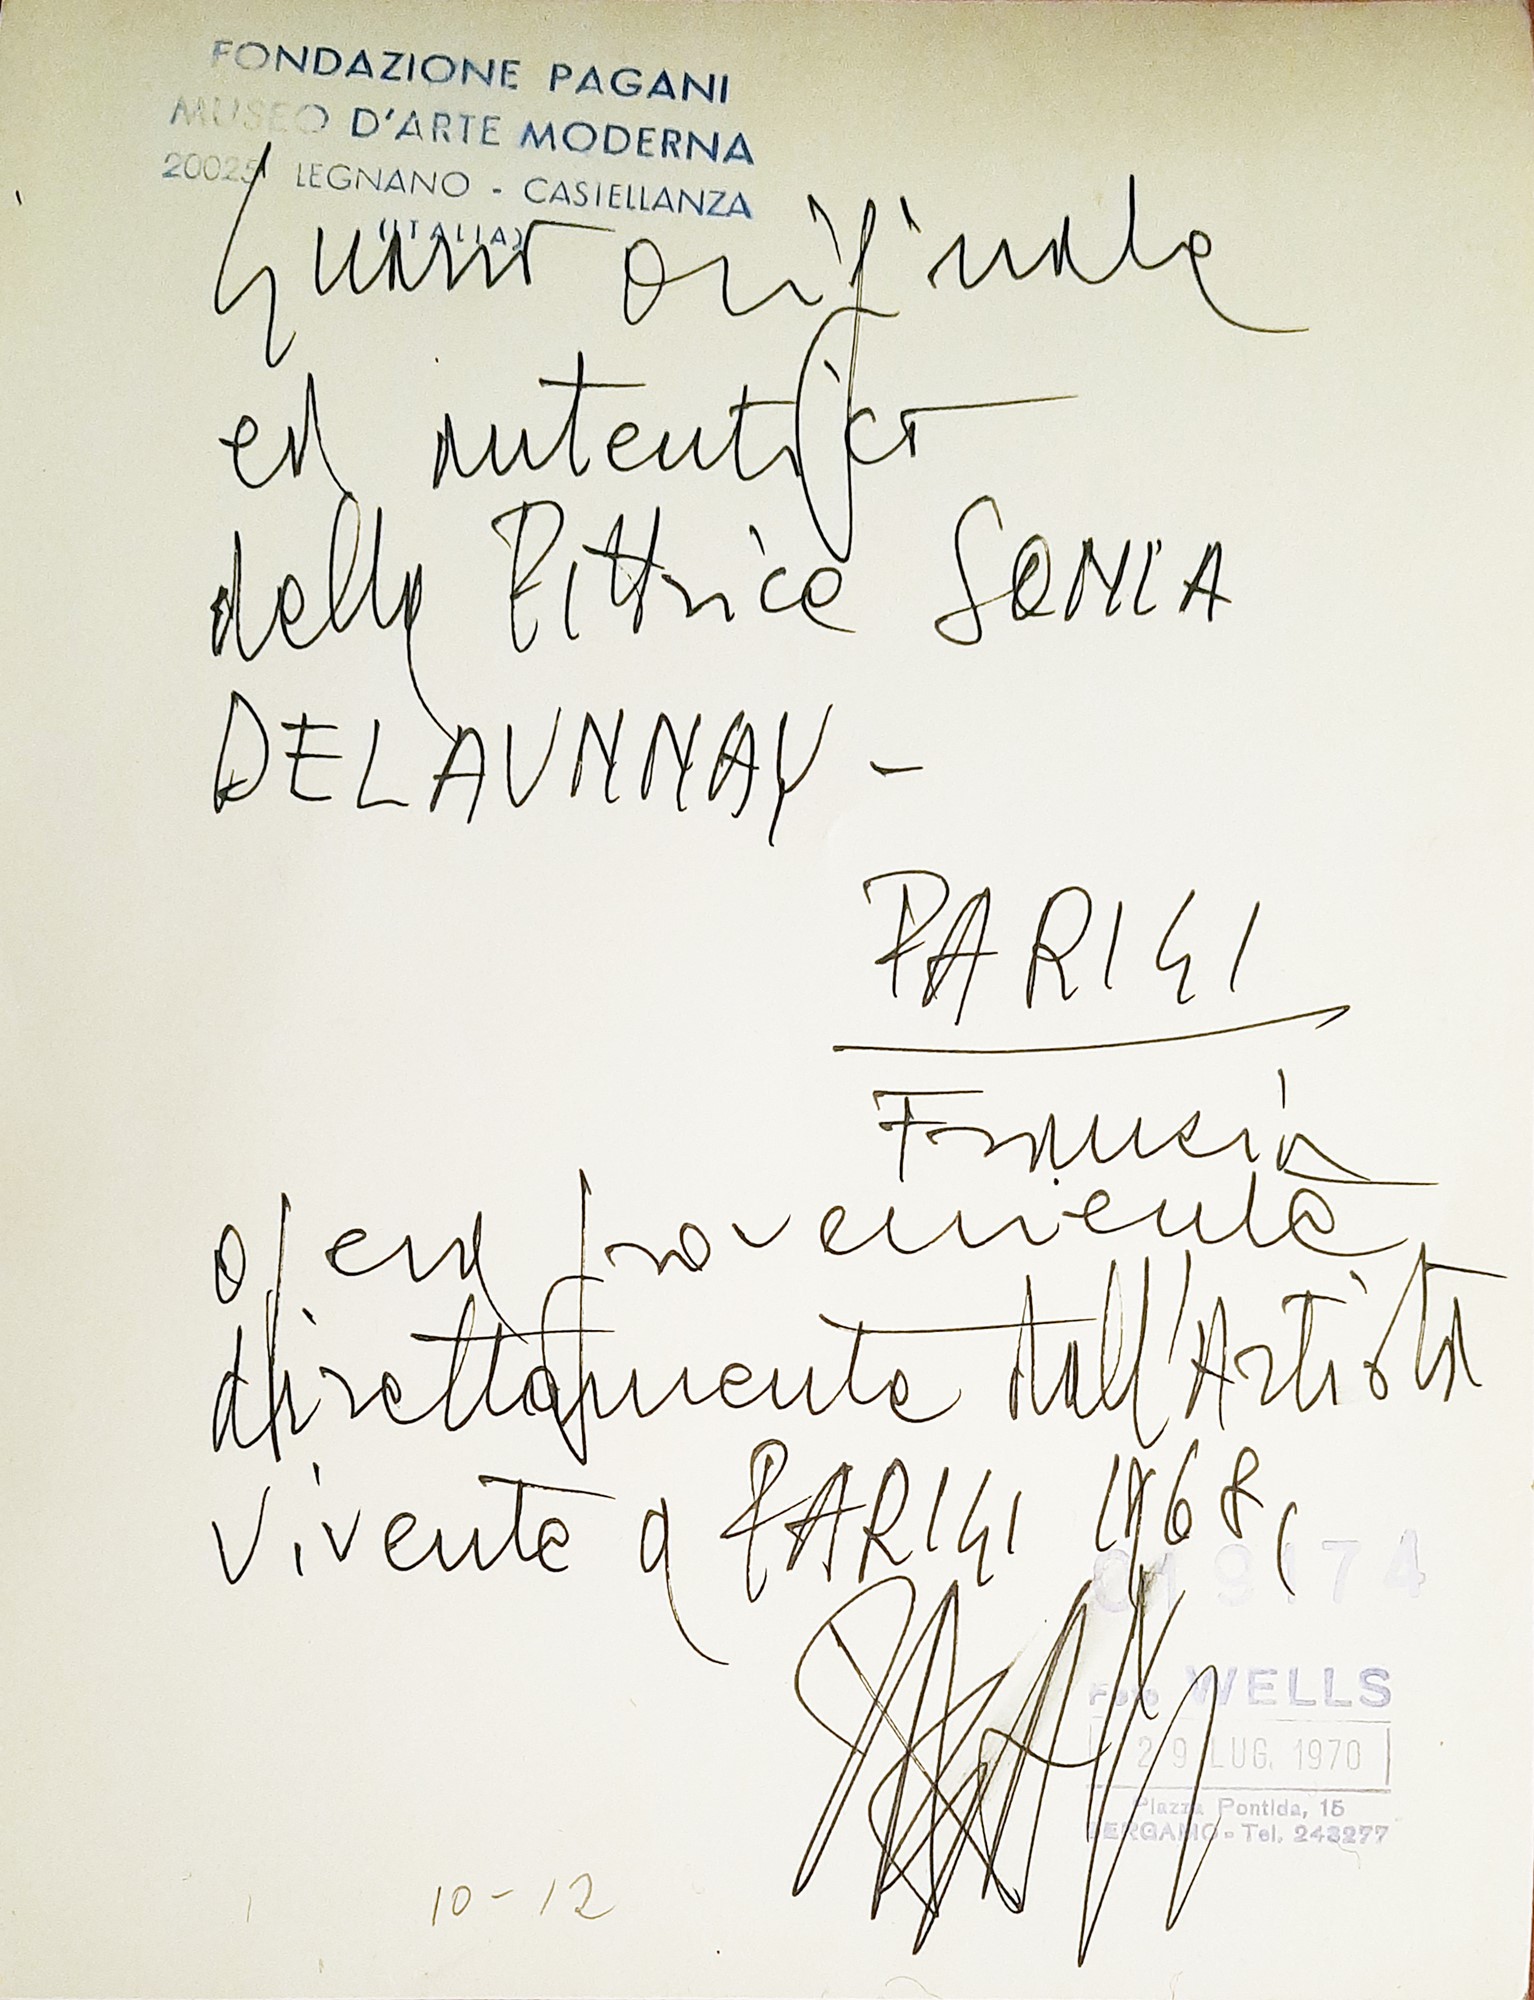 FONDAZIONE PAGANI
MUSEO D'ARTE MODERNA
20025 LEGNANO - CASTELLANZA
(ITALIA)
Guasto originale
ed autentico
della Pittrice SONIA
DELAUNNAY -
PARIGI
Francia
opera proveniente
direttamente dall'Artista
vivente a PARIGI 1968,
019174
Foto WELLS
29 LUG. 1970
Piazza Pontida, 15
BERGAMO - Tel. 243277
10-12